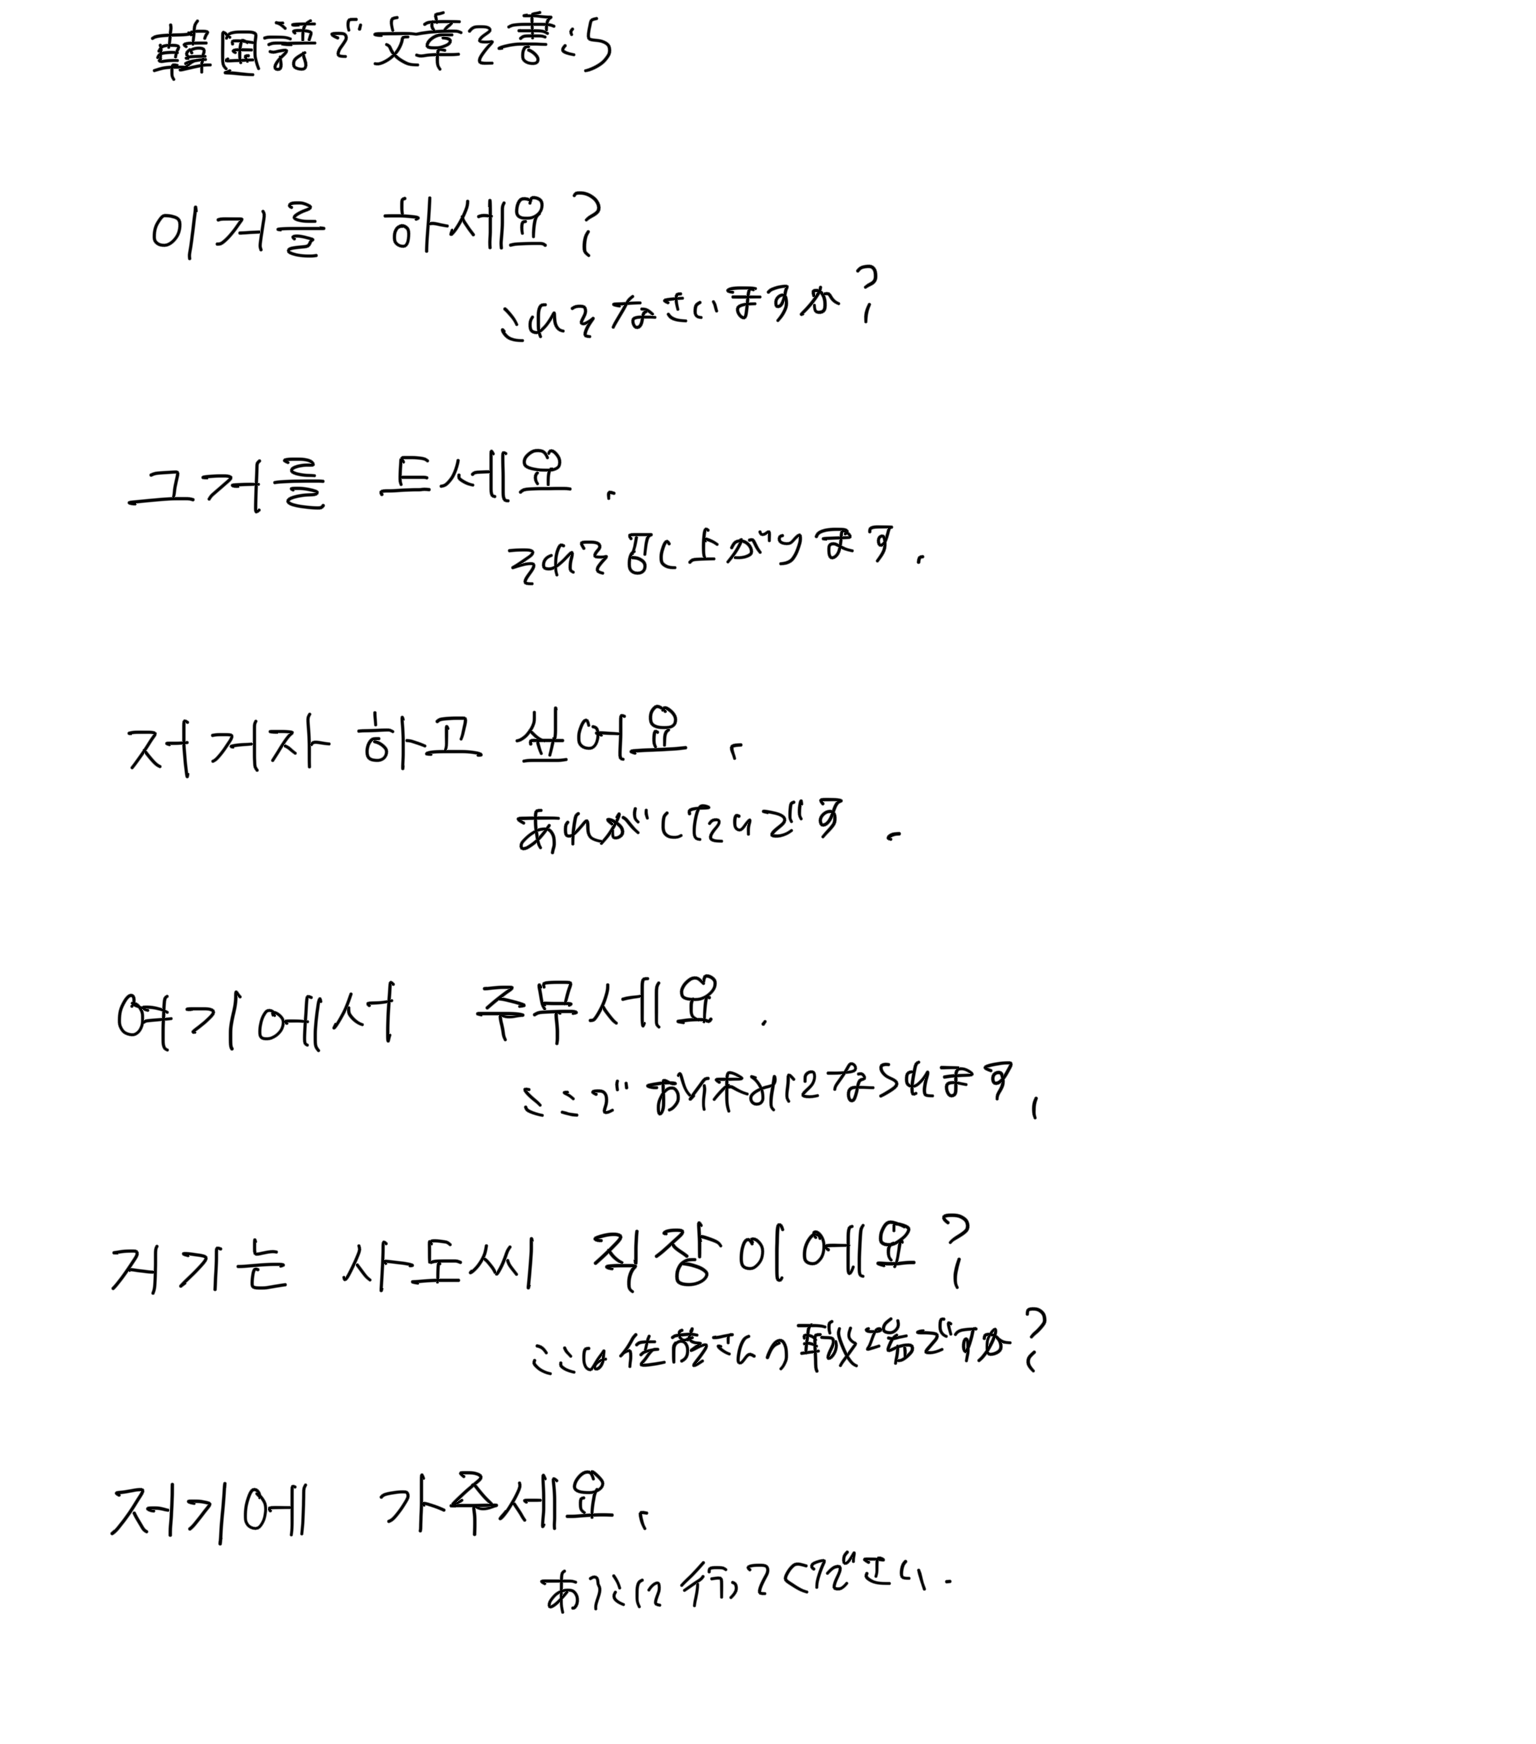 韓国語で文章を書こう
이거를 하세요?
これをなさいますか?
그거를 드세요.
それを召し上がります.
저거자 하고 싶어요.
あれがしたいです.
여기에서 주무세요.
ここでお休みになられます.
거기는 사도씨 직장이에요?
ここは佐藤さんの職場ですか?
저기에 가주세요.
あそこに行ってください.